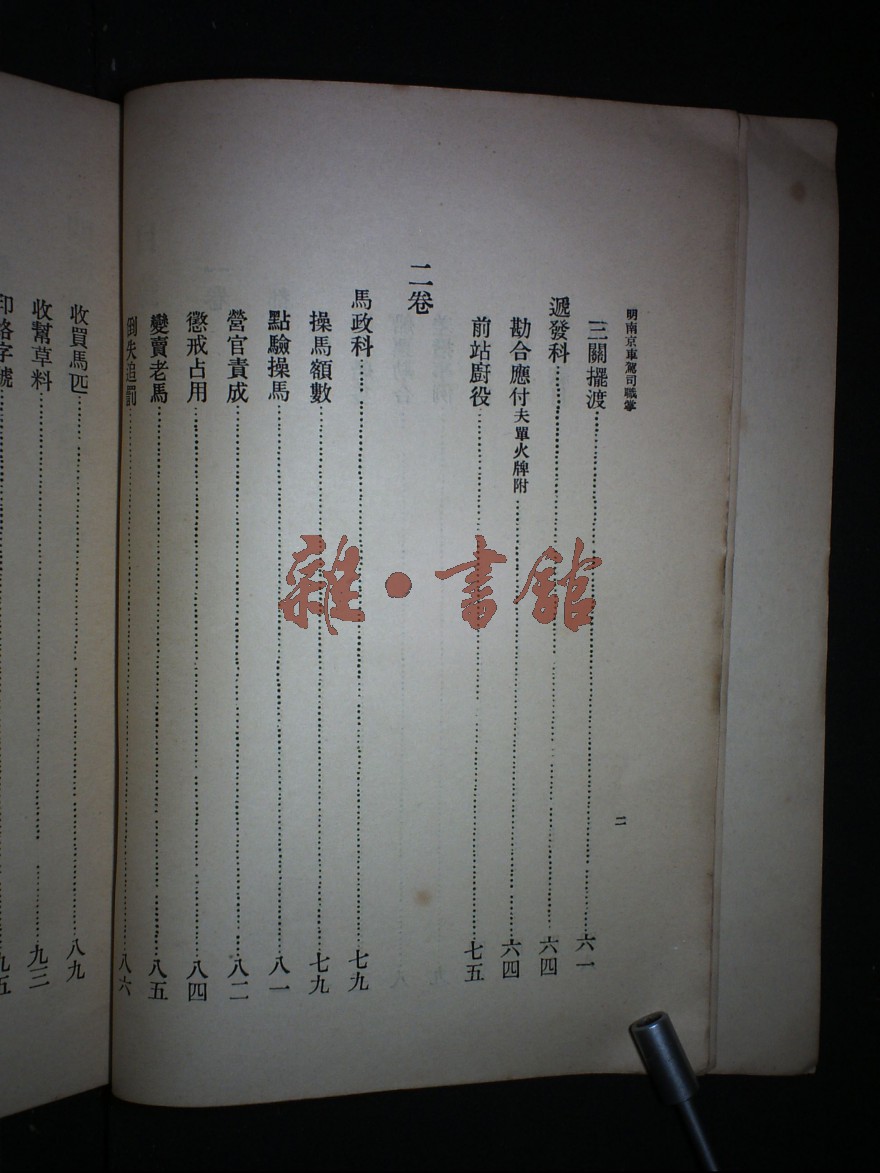 明南京車駕司職掌
三關擺渡……六一
遞發科……六四
勘合應付夫單火牌附……六四
前站廚役……七五
二卷
馬政科……七九
操馬額數……七九
點驗操馬……八一
營官責成……八二
懲戒占用……八四
變賣老馬……八五
倒失追罰……八六
二
收買馬匹……八九
收幫草料……九三
印烙字號……九五
雜·書館